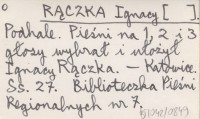 RĄCZKA Ignacy [ ].
Podhale. Pieśni na 1, 2 i 3
głosy wybrał i ułożył
Ignacy Rączka. — Katowice.
Ss. 27. Biblioteczka Pieśni
Regionalnych nr 7.